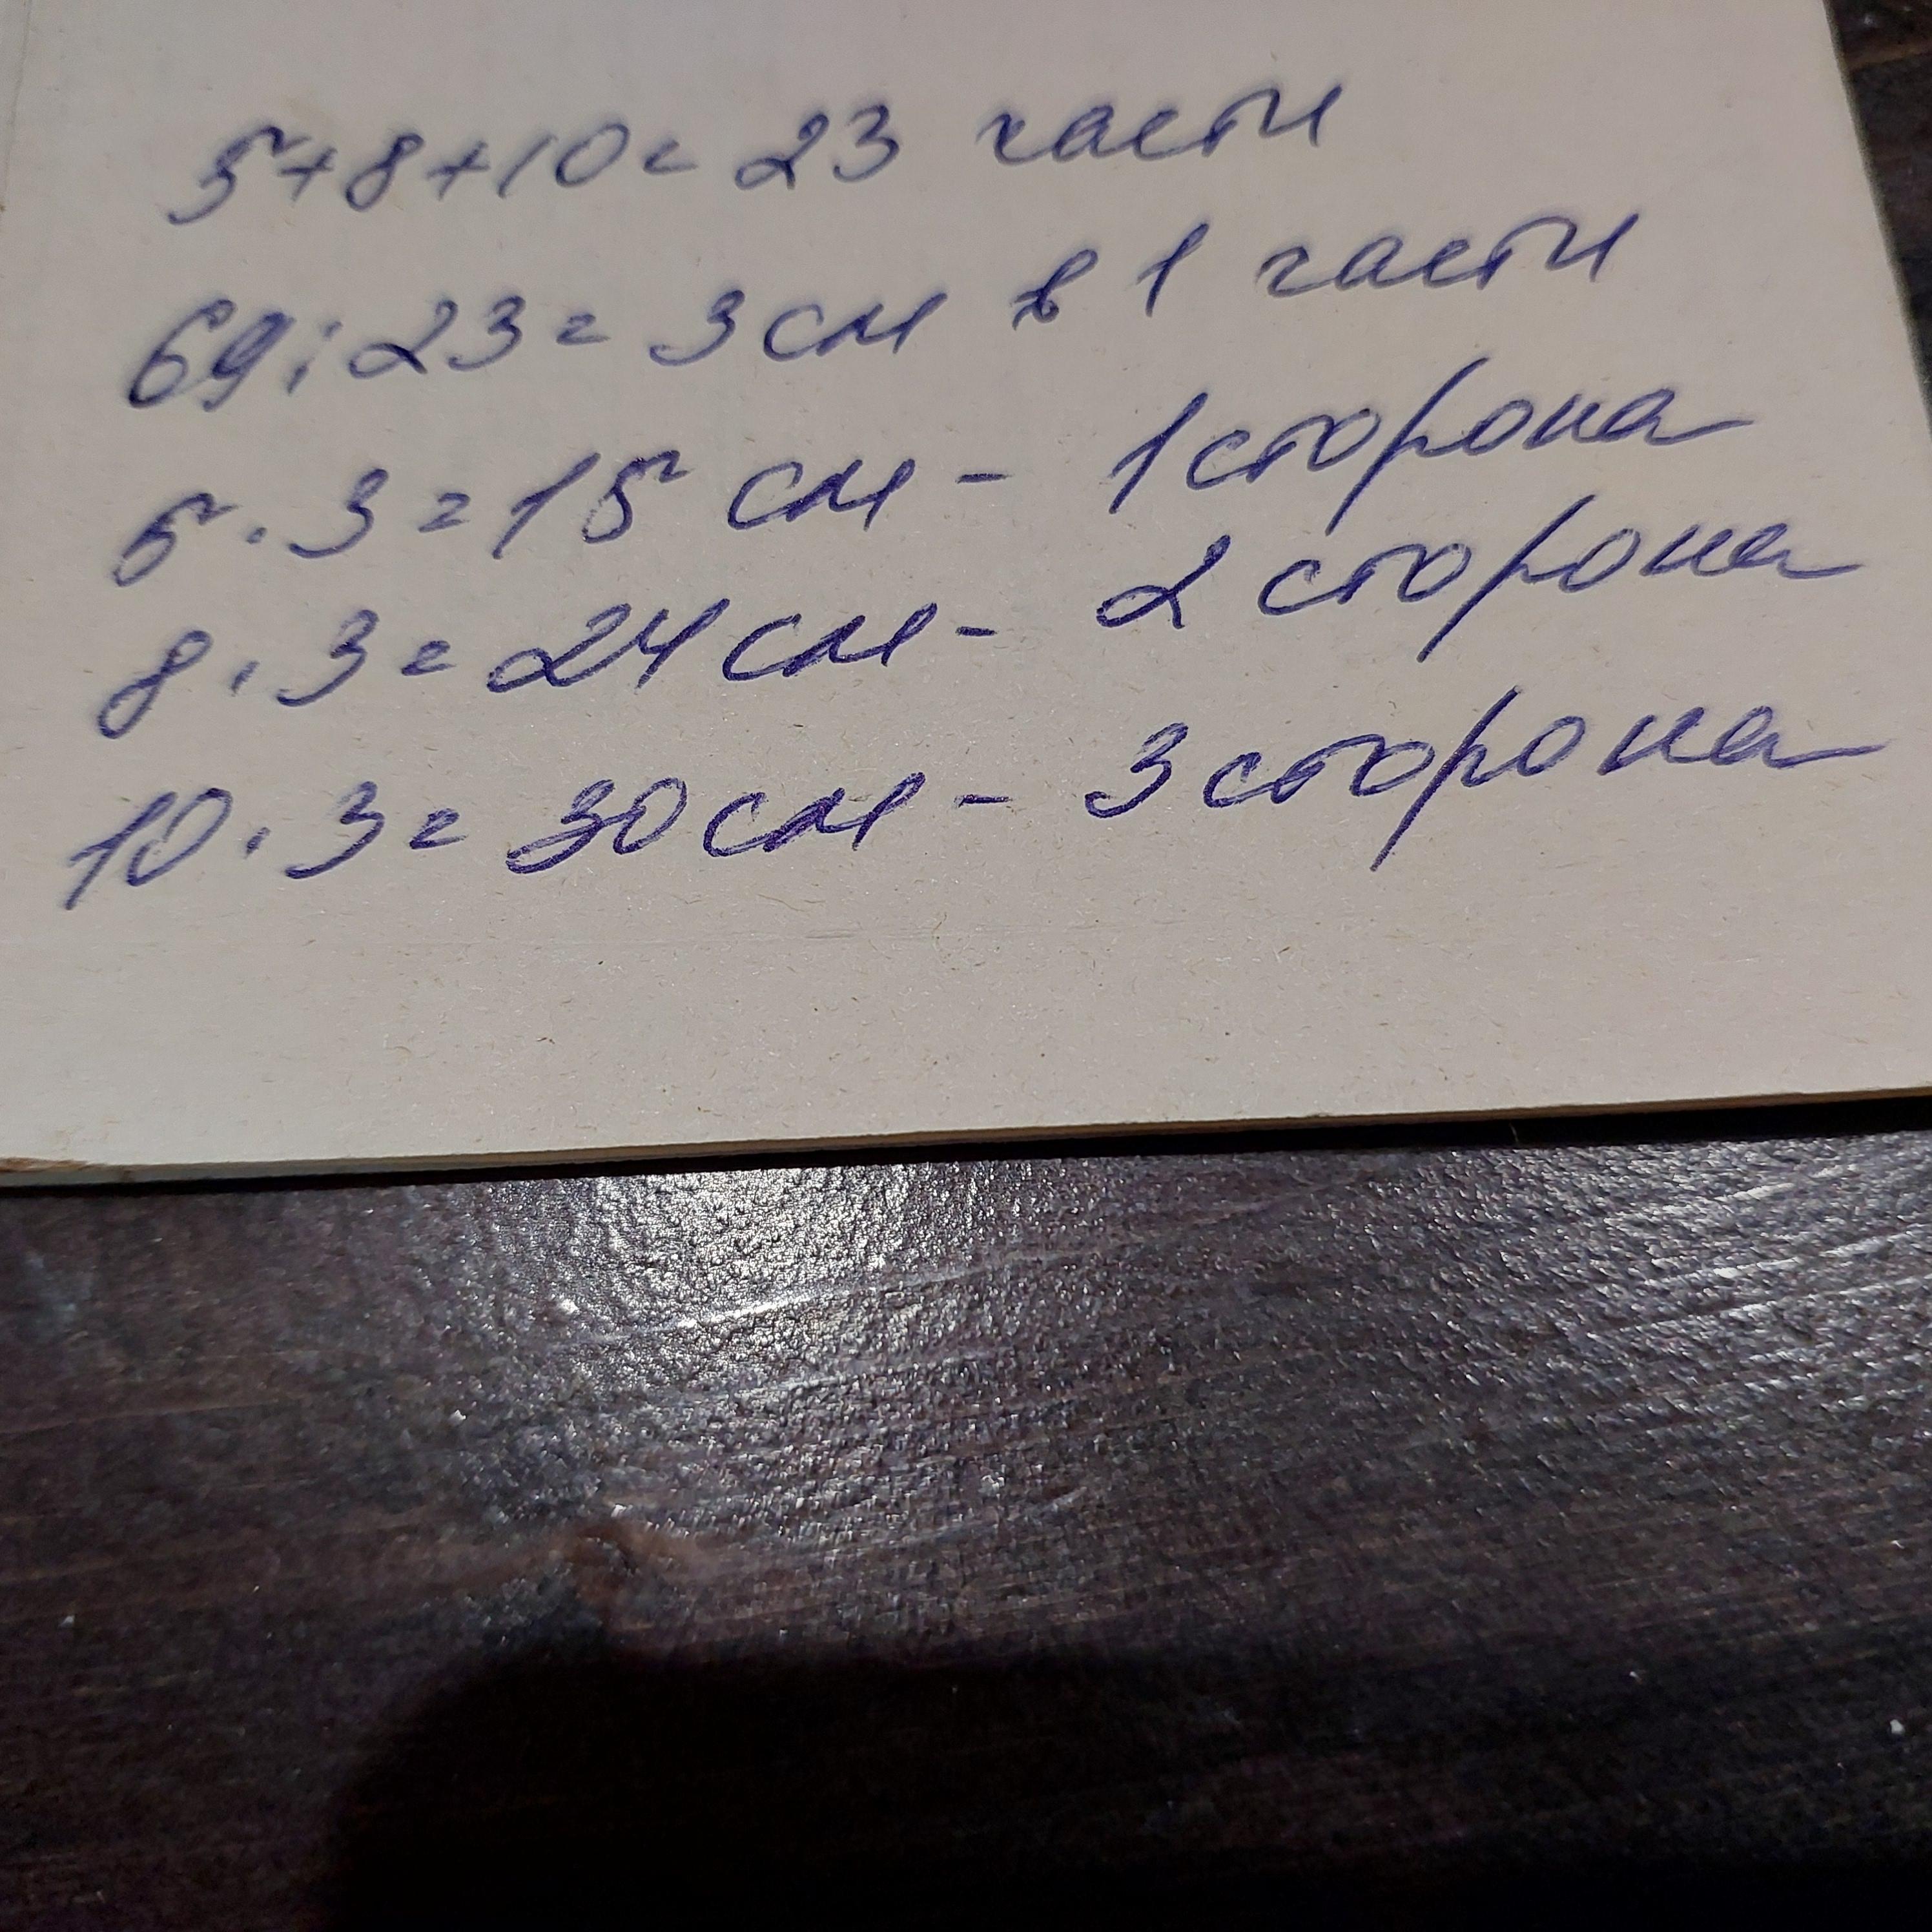 5+8+10=23 части
69:23=3см в 1 части
5·3=15 см - 1 сторона
8·3=24 см - 2 сторона
10·3=30 см - 3 сторона